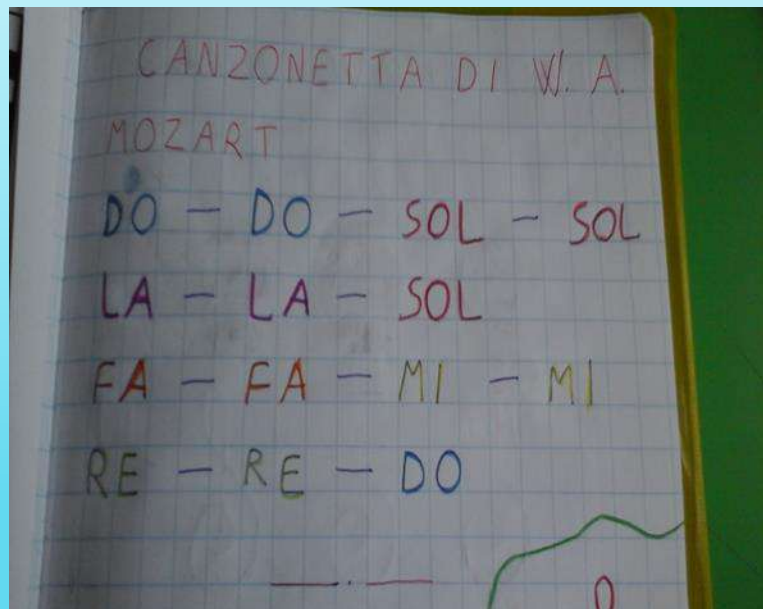 CANZONETTA DI W. A.
MOZART
DO - DO - SOL - SOL
LA - LA - SOL
FA - FA - MI - MI
RE - RE - DO